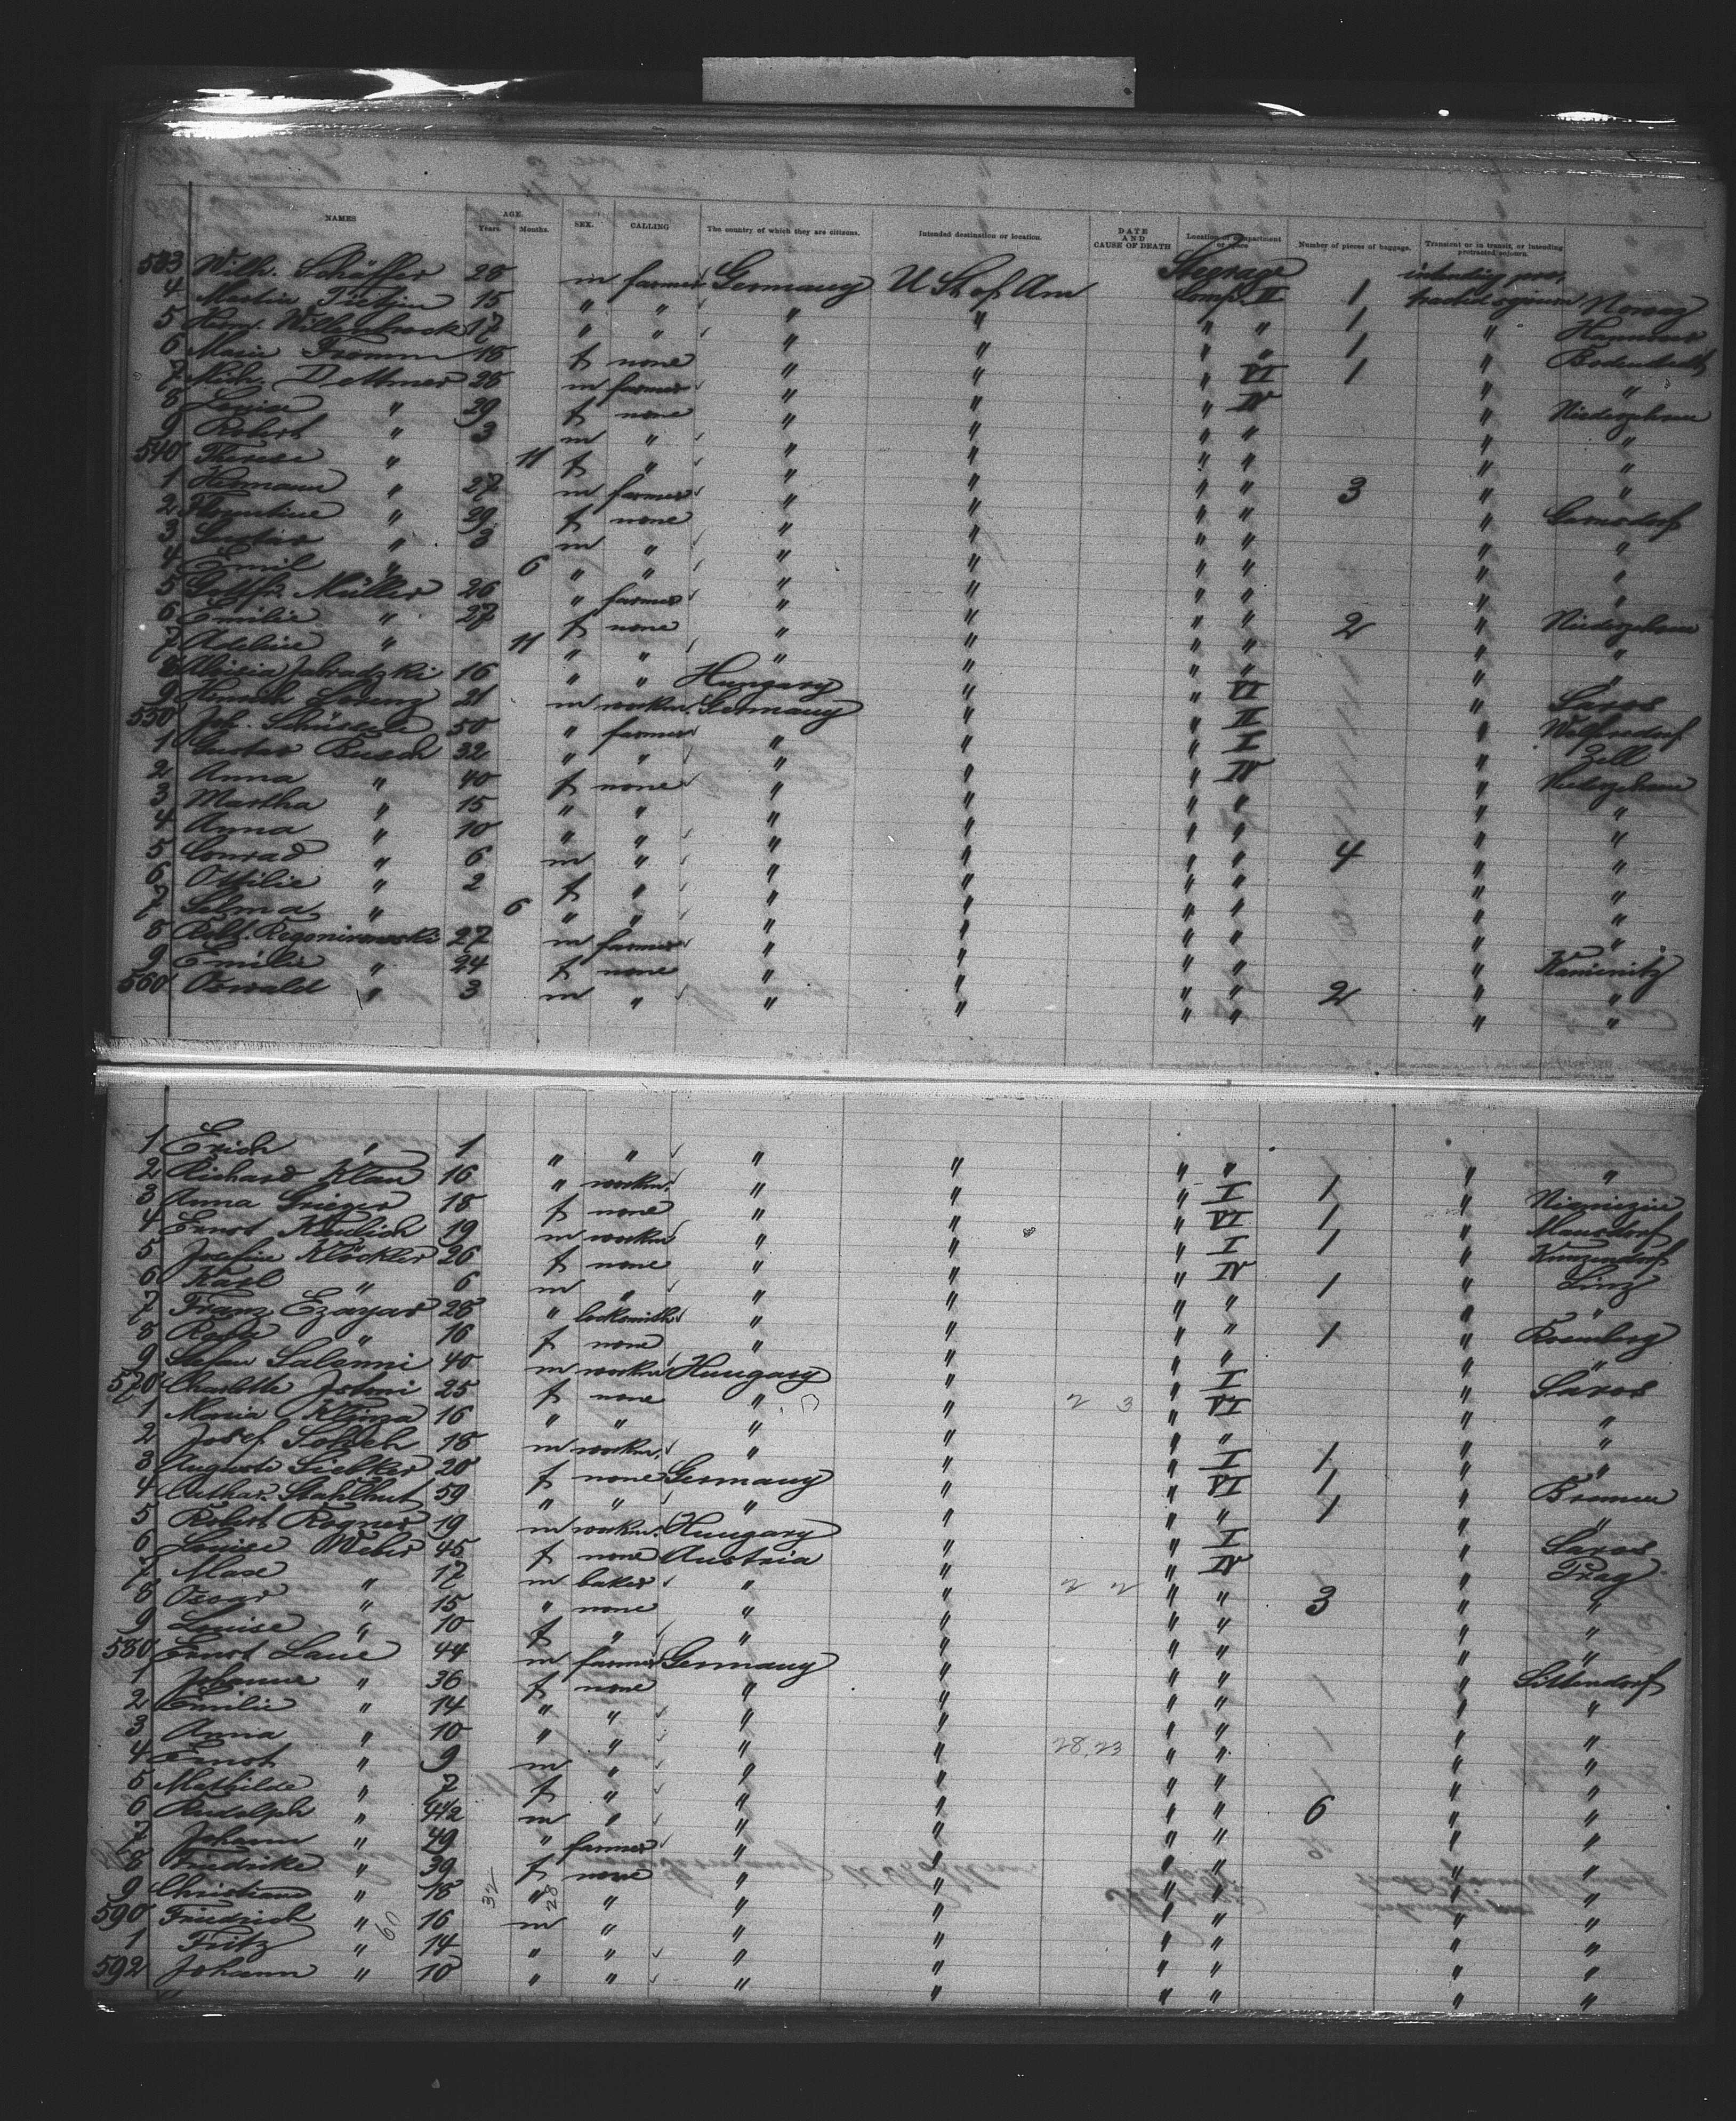 NAMES AGE. Years. Months. SEX. CALLING The country of which they are citizens. Intended destination or location. DATE AND CAUSE OF DEATH Location of compartment or space Number of pieces of baggage. Transient or in transit, or intending protracted sojourn.
533 Wilh. Schäffer 28 m farmer Germany U St of Am Steerage Comp. II 1 intending pro,
4 Martin Tietjen 15 " " " " " " 1 tracted sojourn
5 Herm. Willenbrock 17 " " " " " " 1 " Hannover
6 Marie Fromm 18 f none " " " VI 1 "
7 Mich. Dettmer 28 m farmer " " " IV "
8 Louise " 29 f none " " " " "
9 Robert " 3 m " " " " " "
540 Therese " 11 f " " " " " "
1 Hermann " 27 m farmer " " " " 3 "
2 Florentine " 29 f none " " " " "
3 Gustav " 3 m " " " " " "
4 Emil " 6 " " " " " " "
5 Gottfr. Müller 26 " farmer " " " " "
6 Emilie " 27 f none " " " " 2 "
7 Adeline " 11 " " " " " " "
8 16 " " Hungary " " VI " Saros
9 Heinrich Lorenz 21 m workm. Germany " " II "
550 Joh. 50 " farmer " " " I " Zell
1 Gustav Busch 32 " " " " " IV "
2 Anna " 40 f none " " " " "
3 Martha " 15 " " " " " " "
4 Anna " 10 " " " " " " "
5 Conrad " 6 m " " " " " 4 "
6 Ottilie " 2 f " " " " " "
7 Selma " 6 " " " " " " "
8 27 m farmer " " " " " Kamienitz
9 Emilie " 24 f none " " " " " "
560 Oswald " 3 m " " " " " 2 " "
1 Erich " 1 " " " " " "
2 Richard Klau 16 " workm. " " " I 1 " "
3 Anna Grieger 18 f none " " " VI 1 "
4 Ernst Kaulich 19 m workm " " " I 1 "
5 Josefine Klöckler 26 f none " " " IV " Kunzendorf
6 Karl " 6 m " " " " " 1 " Linz
7 Franz Ezayar 28 " locksmith " " " " "
8 Rosa " 16 f none " " " " 1 "
9 Stefan Salenni 40 m workm Hungary " " I "
570 Charlotte 25 f none " " 2 3 " VI " Saros
1 Maria 16 " " " " " " " "
2 Josef 18 m workm. " " " I 1 " "
3 Auguste Sielker 20 f none Germany " " VI 1 " "
4 Cathar. Stahlhut 59 " " " " " " 1 " Bremen
5 Robert Rogner 19 m workm. Hungary " " I "
6 Louise Weber 45 f none Austria " " IV " Saros
7 Max " 17 m baker " " 2 2 " " " Prag
8 Oscar " 15 " none " " " " 3 " "
9 Louise " 10 f " " " " " " "
580 Ernst Laue 44 m farmer Germany " " " " "
1 Johanne " 36 f none " " " " " Sittendorf
2 Emilie " 14 " " " " " " " "
3 Anna " 10 " " " " 28,23 " " " "
4 Ernst " 9 m " " " " " " "
5 Mathilde " 7 f " " " " " " "
6 Rudolph " 4 1/2 m " " " " " 6 " "
7 Johann " 49 " farmer " " " " " "
8 Friedrike " 39 f none " " " " " "
9 Christiane " 18 32 " 28 " " " " " " "
590 Friedrich " 60 16 m " " " " " " "
1 Fritz " 14 " " " " " " " "
592 Johann " 10 " " " " " " " "